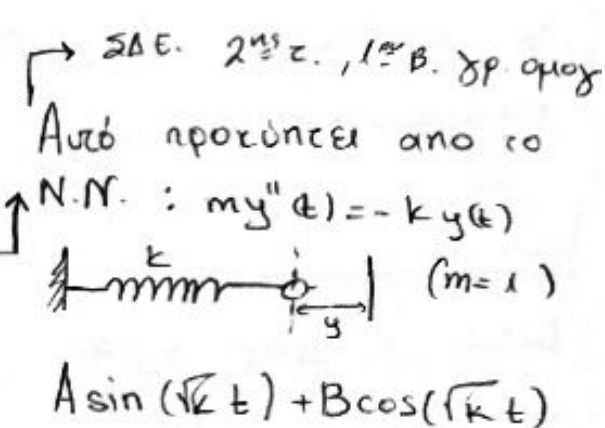 ΣΔΕ. 2ης τ., 1ου Β. γρ. ομογ
Αυτό προκύπτει απο το
Ν.Ν. : my"(t) = - k y(t)
k
(m=1)
y
A sin (√k t) + B cos(√k t)